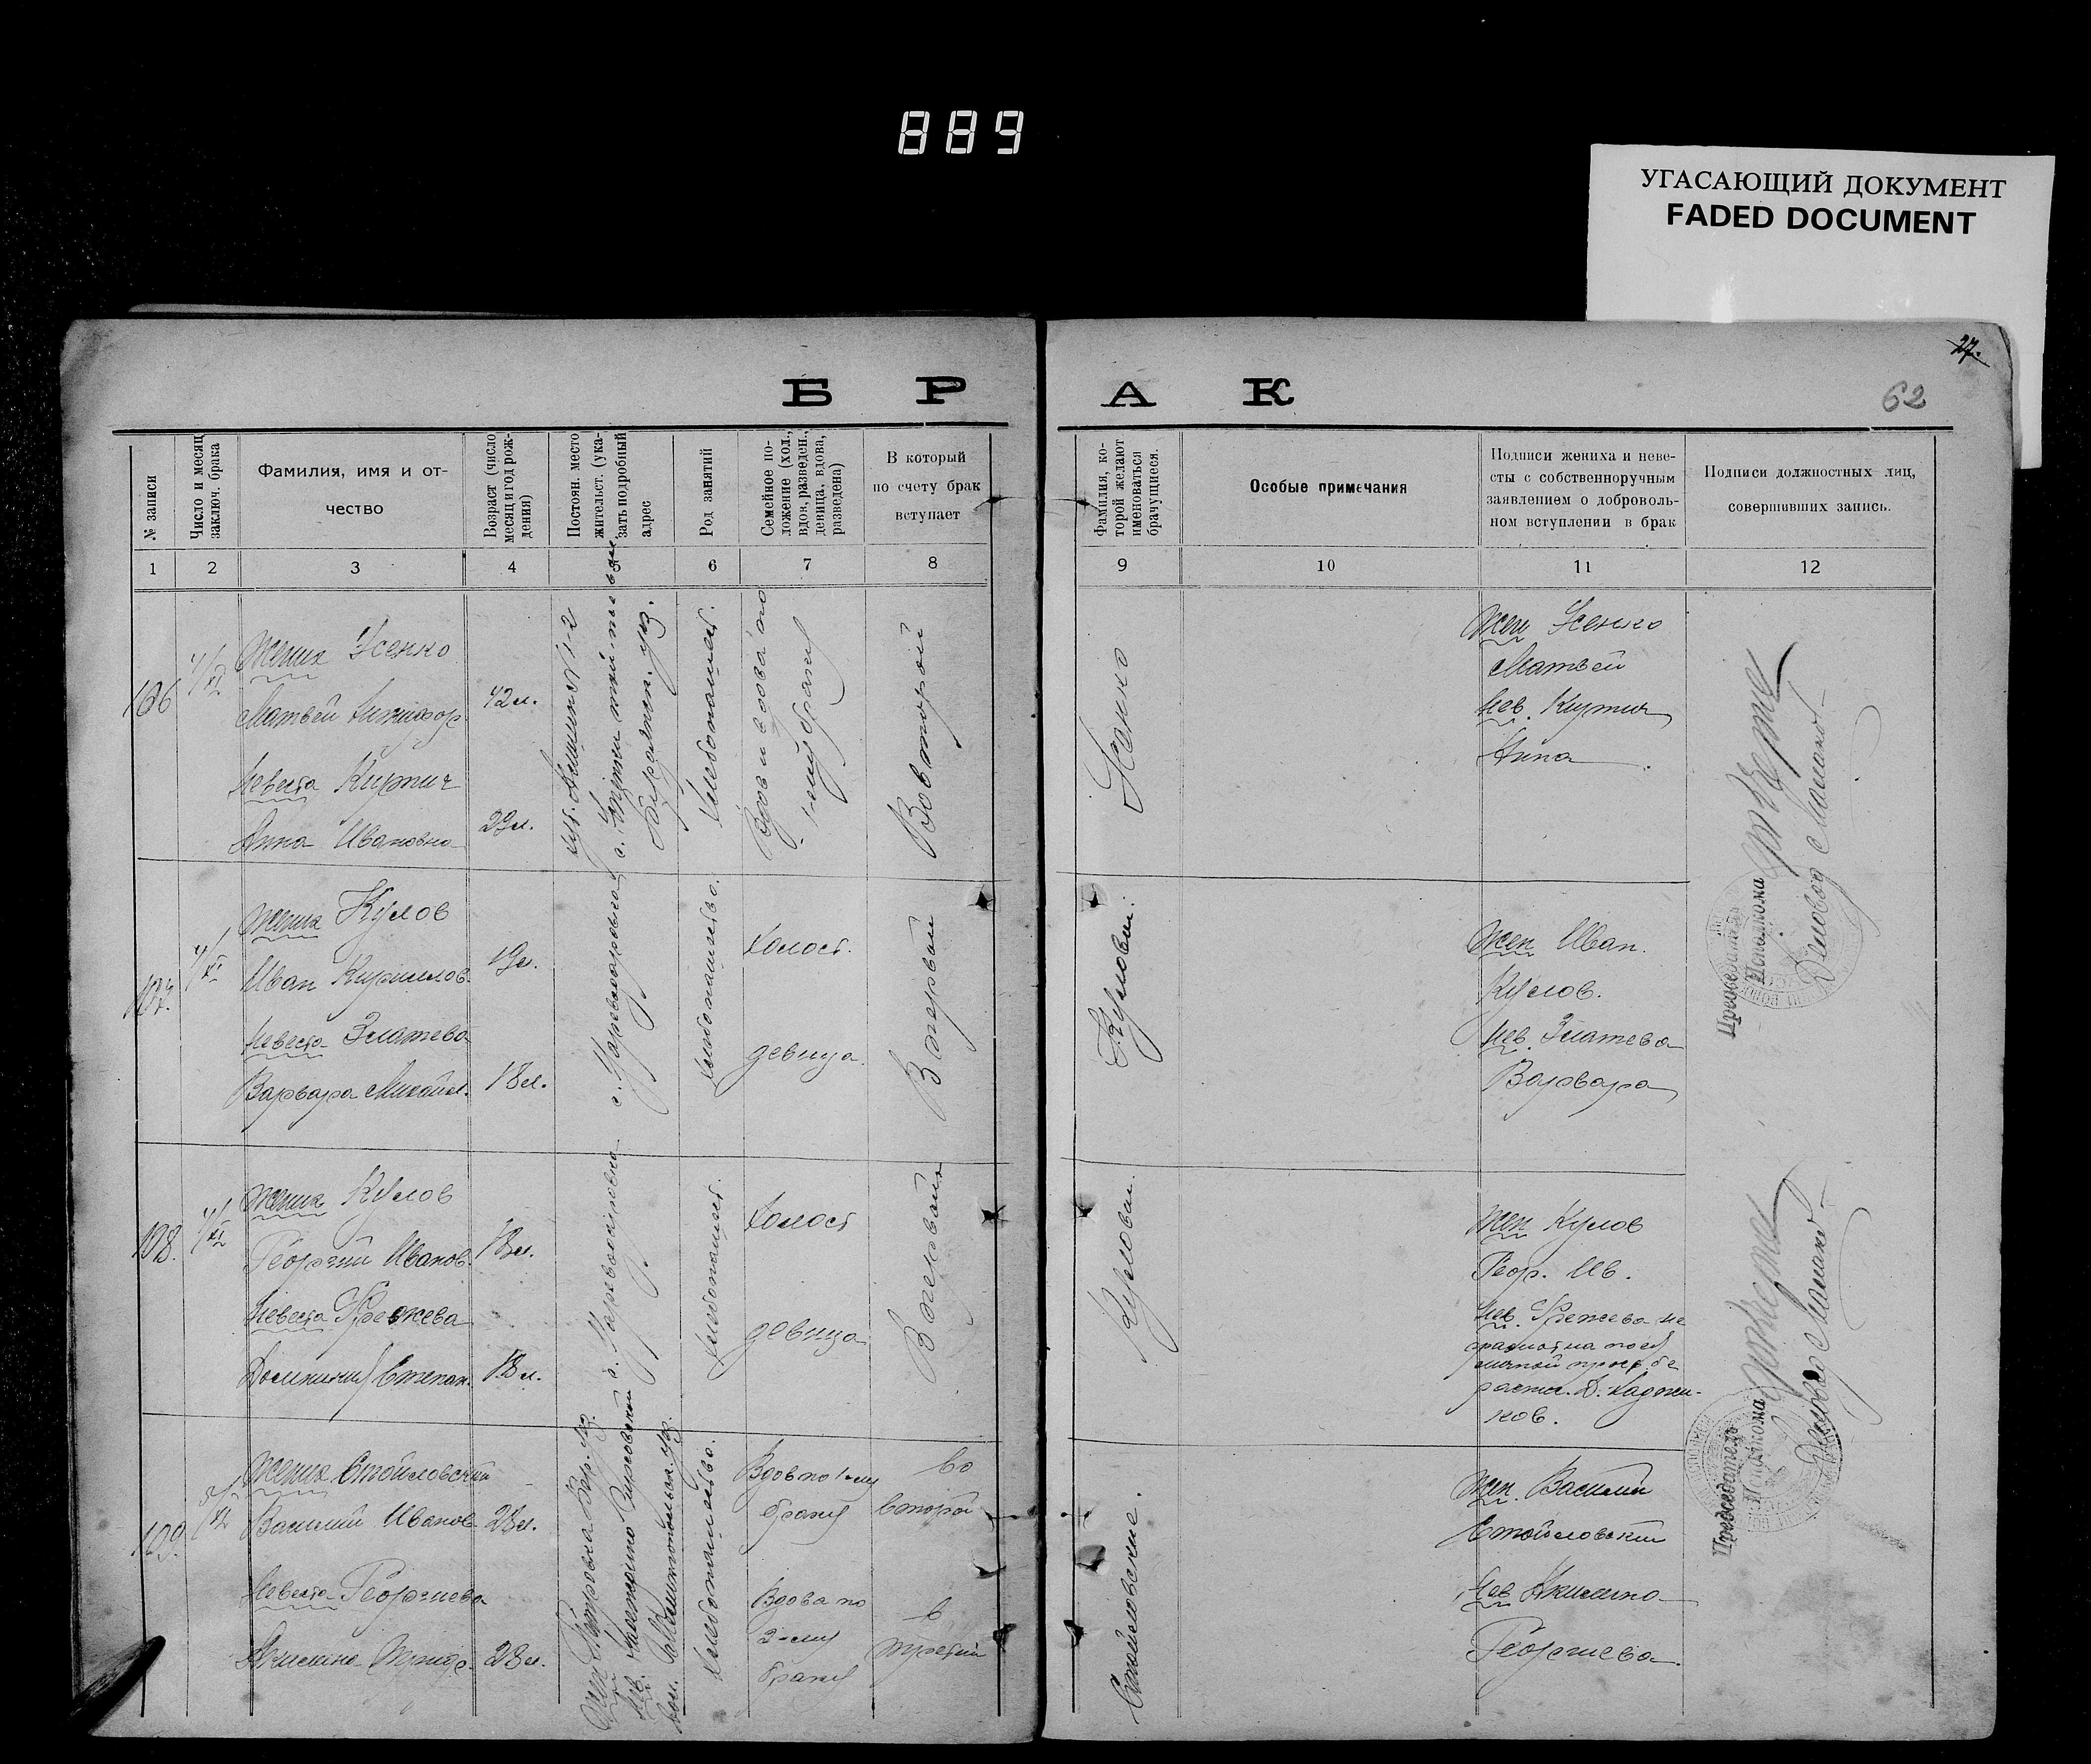 889
УГАСАЮЩИЙ ДОКУМЕНТ
FADED DOCUMENT
27.
62
Б Р А К
№ записи
Число и месяц
заключ. брака
Фамилия, имя и от-
чество
Возраст (число
месяц и год рож-
дения)
Постоян. место
жительст. (ука-
зать подробный
адрес
Род занятий
Семейное по-
ложение (хол.,
вдов, разведен.,
девица, вдова,
разведена)
В который
по счету брак
вступает
Фамилия, ко-
торой желают
именоваться
брачущиеся.
Особые примечания
Подписи жениха и неве-
сты с собственноручным
заявлением о доброволь-
ном вступлении в брак
Подписи должностных лиц,
совершивших запись.
1 2 3 4 5 6 7 8 9 10 11 12
106
4/XI
Жених Усенко
Матвей Никифор.
42 л.
Невеста Киртич
Анна Ивановна
29 л.
уез.
Хлебопашест.
Вдов и вдова по
1-му браку
Во второй
Усенко
Жен Усенко
Матвей
Нев. Киртич
Анна
107.
4/XI
Жених Кулов
Иван Кириллов.
19 л.
Невеста Златева
Варвара Михайл.
18 л.
хлебопашество.
холост.
девица.
В первый
Куловы.
Жен Иван.
Кулов.
Нев. Златева
Варвара
108.
4/XI
Жених Кулов
Георгий Иванов.
18 л.
Невеста Фрежева
Домникия Степан.
18 л.
хлебопашест.
Холост
девица
В первый
Куловы.
Жен Кулов
Геор. Ив.
Нев. Фрежева не
грамотна по её
личной прось бе
распис. Д. Каджи-
ков.
109.
5/XI
Жених Стойловский
Василий Иванов.
28 л.
Невеста Георгиева
Акилина
28 л.
Жен
Нев.
вол. Мелитопольск. уез.
хлебопашество.
Вдов по 1-му
браку
Во
второй
Вдова по
2-му
браку
в
третий
Стойловские.
Жен. Василий
Стойловский
Нев Акилина
Георгиева.
Председатель
Исполкома
Деловод
Председатель
Исполкома
Деловод